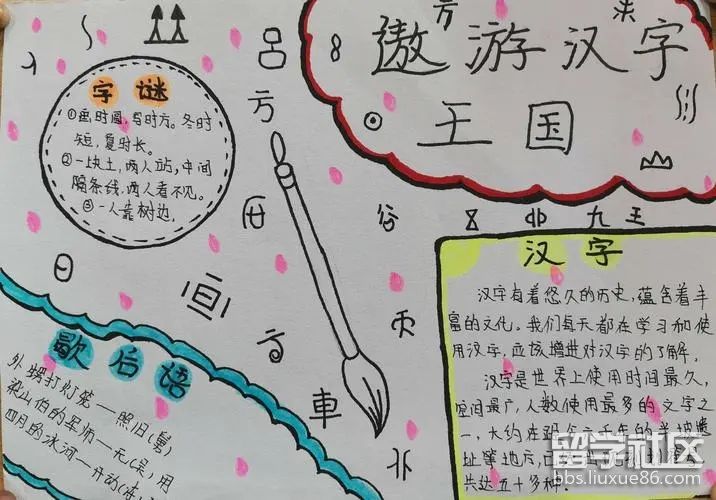 遨游汉字
王国
字谜
①画时圆,写时方。冬时
短,夏时长。
②一块土,两人站,中间
隔条线,两人看不见。
③一人靠树边。
汉字
汉字有着悠久的历史,蕴含着丰
富的文化。我们每天都在学习和使
用汉字,应该增进对汉字的了解。
汉字是世界上使用时间最久,
空间最广,人数使用最多的文字之
一,大约在距今六千年的半坡遗
址等地方,已
共达五十多种。
歇后语
外甥打灯笼一照旧(舅)
梁山伯的
四月的冰河一开动(冻)
車
留学社区
bbs.liuxue86.com